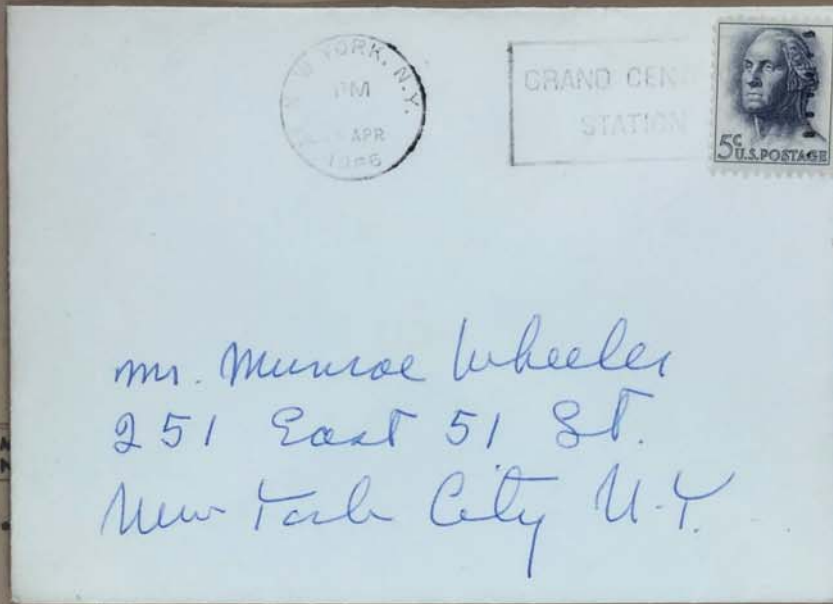 YORK, N.Y.
PM
APR
1966
GRAND CEN
STATION
5c
U.S. POSTAGE
Mr. Munroe Wheeler
251 East 51 St.
New York City N.Y.